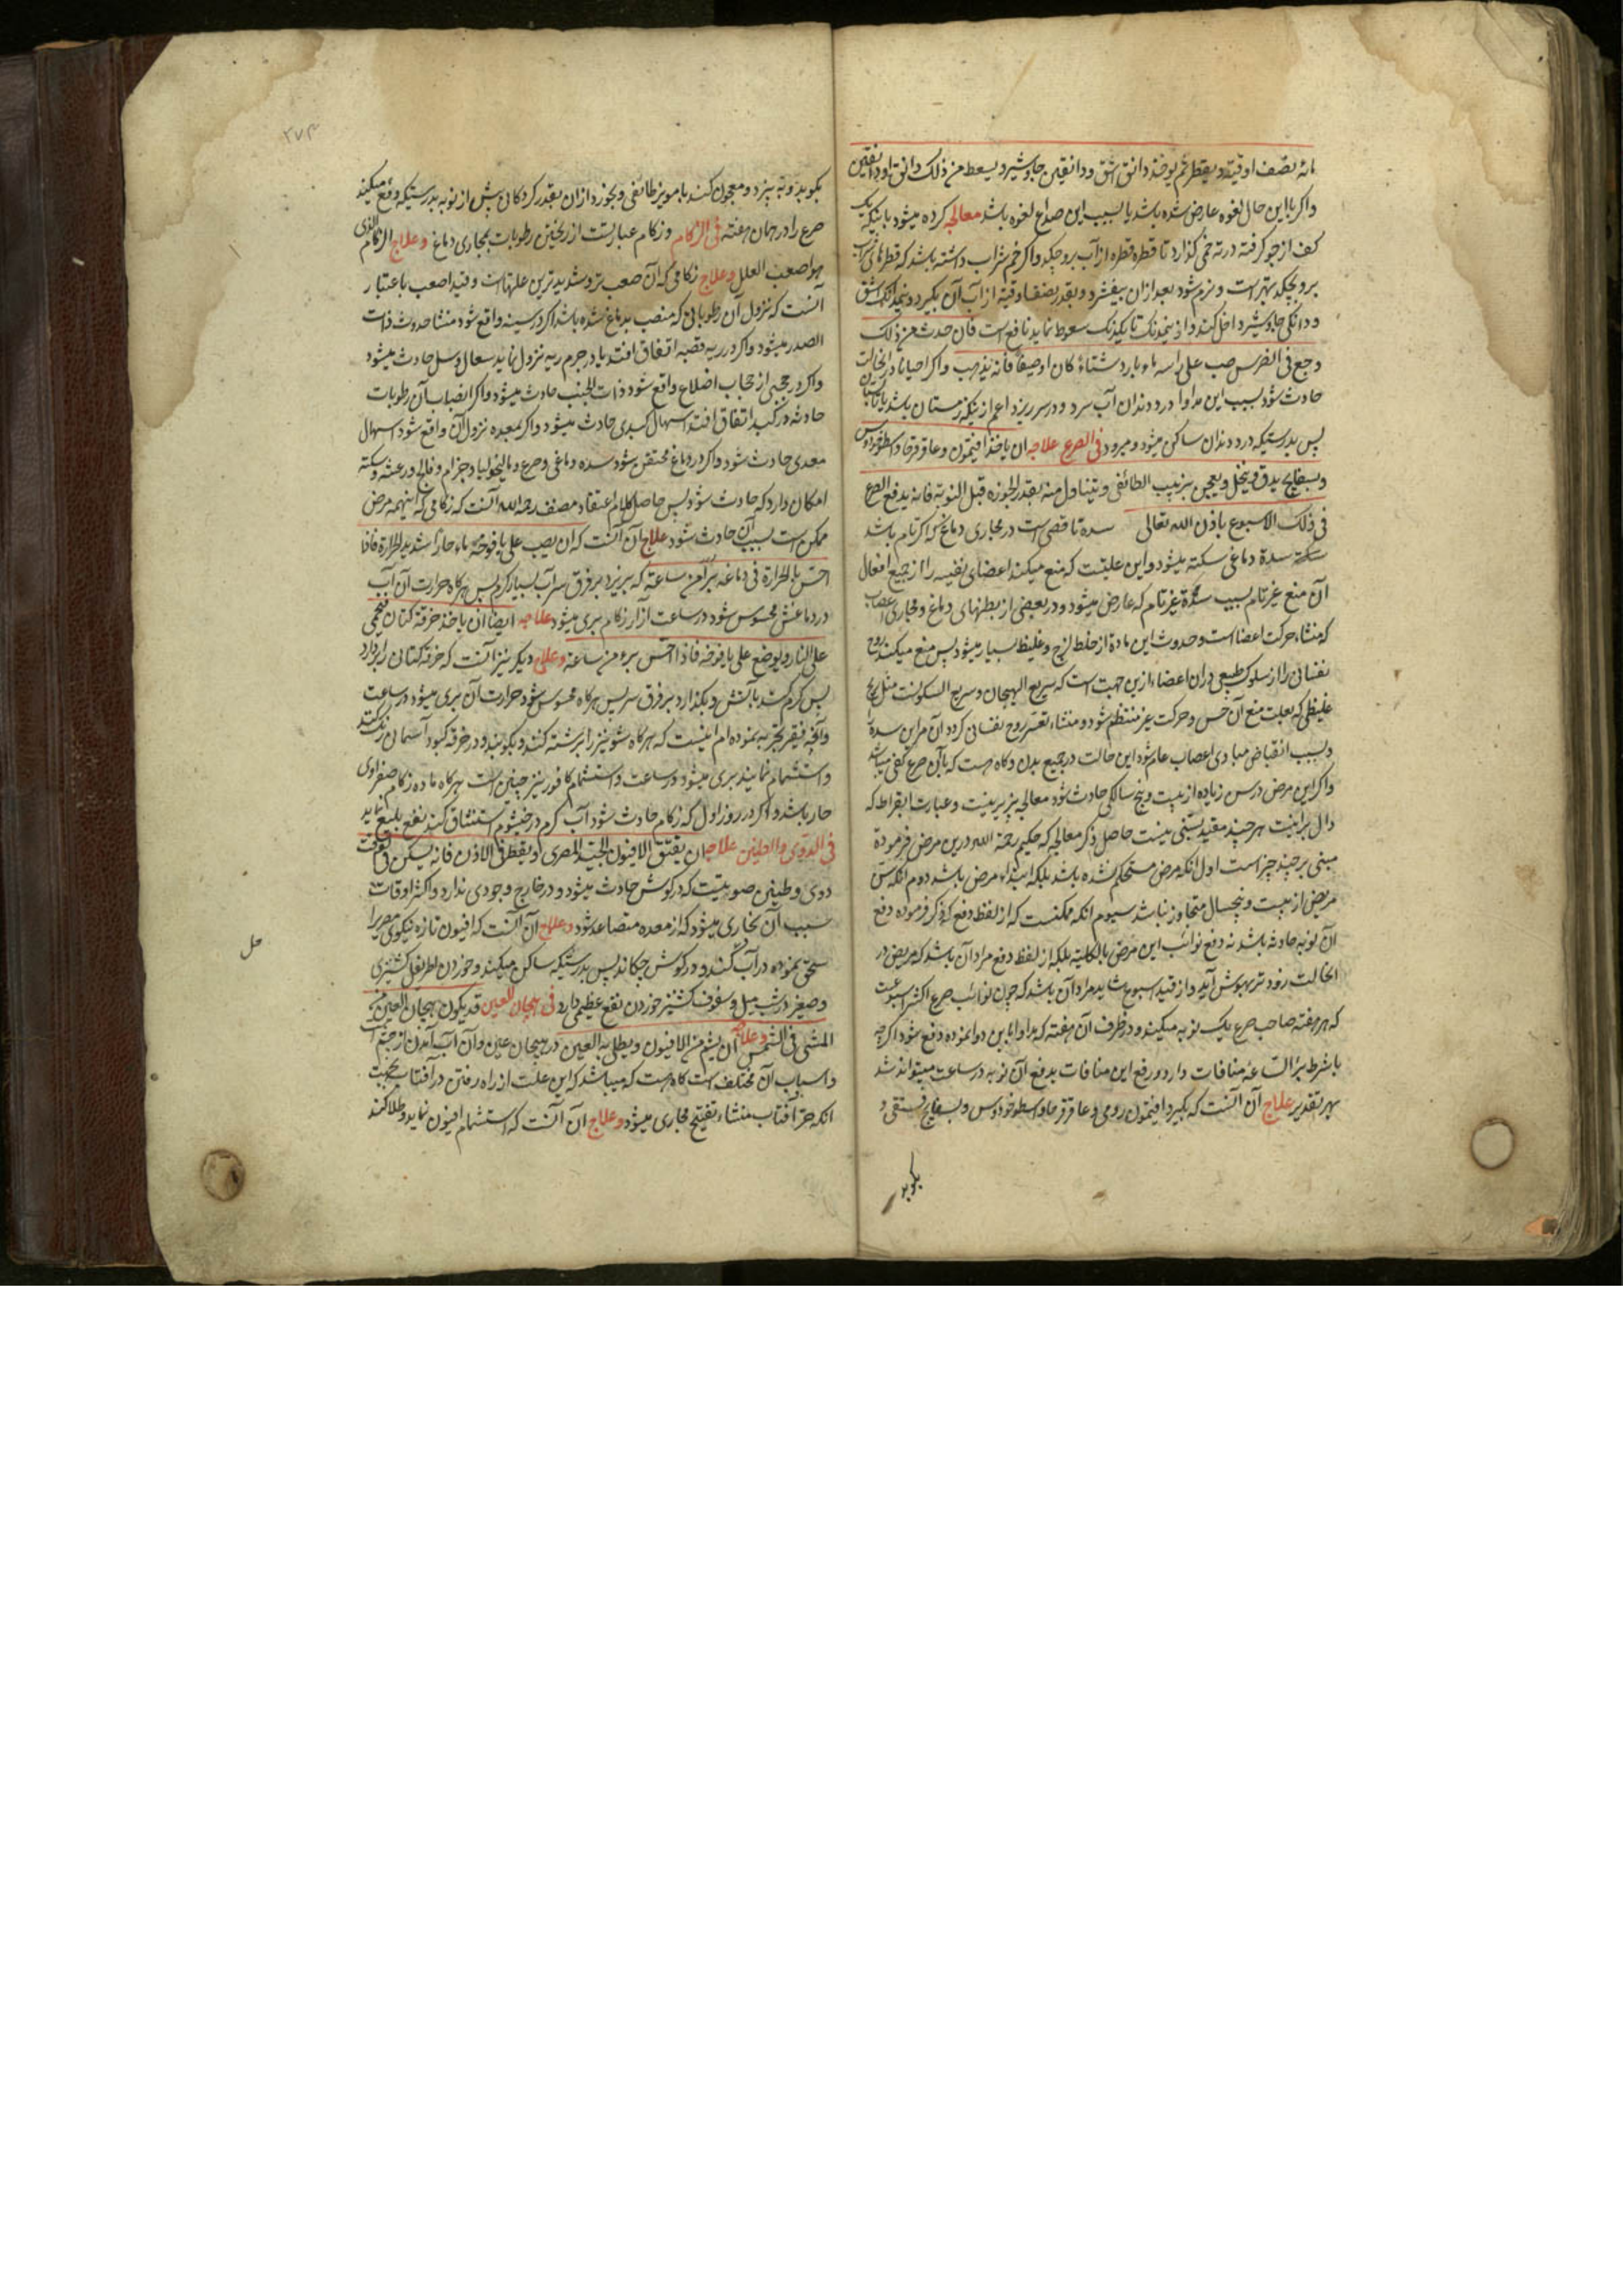 مائه نصف اوقیّة و یقطر ثم یوخذ دانق اشق و دانقین جاوشیر و یسعط من ذلک دانق او دانقین
واکر بااین حال لغوه عارض شده باشد یا بسبب این صداع لغوه باشد معالجه کرده میشود باینکه یک
کف از جو کرفته در ته خمی کذارد تا قطره قطره از آب برو چکد واکر خم شراب داشته باشد که قطرهای شراب
برو بچکد بهتر است و نرم شود بعد ازان بیفشرد و بقدر نصف اوقیه از آب آن بکیرد و نیمدانک اشق
و دانکی جاوشیر داخل کند و از نیمدنک تا یکدنک سعوط نماید نافع است فان حدث من ذلک
وجع فی الضرس صب علی راسه ماء بارد شتاءً کان او صیفاً فانه یذهب واکر احیانا در انحالت
حادث شود بسبب این مداوا درد دندان آب سرد و در سر ریزد اعم از نیکه زمستان باشد یا تابستان
پس بدرستیکه درد دندان ساکن میشود و میرود فی الصرع علاجه ان یاخذ افیتمون و عاقرقرحا و اسطوخودوس
و بسفایج یدق و ینخل و یعجن بزبیب الطائفی و یتناول منه بقدر الجوزه قبل النوبة فانه یدفع الصرع
فی ذلک الاسبوع باذن الله تعالی سده ناقصی است در مجاری دماغ که اکر تام باشد
سکته سدهٔ دماغی سکته میشود و این علیتست که منع میکند اعضای نفسیه را از جمیع افعال
آن منع غیر تام بسبب سدهٔ غیر تام که عارض میشود و در بعضی از بطنهای دماغ و مجاری اعصاب
که منشاء حرکت اعضا است و حدوث این ماده از خلط لزج و غلیظ بسیار میشود پس منع میکند روح
نفسانی را از سلوک طبیعی دران اعضاء ازین جهت است که سریع الهیجان و سریع السکونست مثل ریح
غلیظی که بعلت منع آن حس و حرکت غیر منتظم شود و منشاء تعسر روح نفسانی کردد آن مر این سده را
و بسبب انقباض مبادی اعصاب عام شود این حالت در جمیع بدن و کاه هست که باآن صرع کفی میباشد
واکر این مرض در سن زیاده از بیست و پنج سالکی حادث شود معالجه پزیر نیست و عبارت ابقراط که
دال بر اینست هر چند مقید بسنی نیست حاصل ذکر معالجه که حکیم رحمة الله درین مرض فرموده
مبنی بر چند چیز است اول انکه مرض مستحکم نشده باشد بلکه ابتداء مرض باشد دوم انکه سن
مریض از بیست و پنجسال متجاوز نباشد سیوم انکه ممکنست که از لفظ دفع که ذکر فرموده دفع
آن نوبه حادثه باشد نه دفع نوائب این مرض بالکلیه بلکه از لفظ دفع مراد آن باشد که مریض در
انحالت زود تر بهوش آید و از قید اسبوع شاید مراد آن باشد که چون نوائب صرع اکثر اسبوعیست
که هر هفته صاحب صرع یک نوبه میکند و در ظرف آن هفته که مداوا باین دوا نموده دفع شود اکرچه
باشرط برٔالساعه منافات دارد و رفع این منافات بدفع آن نوبه در ساعت میتواند شد
بهر تقدیر علاج آن آنست که بکیرد افیتمون رومی و عاقرقرحا و اسطوخودوس و بسفایج فستقی و
بکوبد
۲۷۴
بکوبد و به پزد و معجون کند بامویز طائفی و بخورد ازان بقدر کردکان پیش از نوبه بدرستیکه دفع میکند
صرع را در همان هفته فی الزکام و زکام عبارتست از ریختن رطوبات بمجاری دماغ وعلاج الزکام الذی
هو اصعب العلل وعلاج زکامی که آن صعب تر و شدید ترین علتهاست و قید اصعب باعتبار
آنست که نزول آن رطوباتی که منصب بدماغ شده باشد اکر در سینه واقع شود منشا حدوث ذات
الصدر میشود و اکر در ریه قصبه اتفاق افتد یا در جرم ریه نزول نماید سعال و سل حادث میشود
واکر در حجبی از حجاب اضلاع واقع شود ذات الجنب حادث میشود و اکر انصباب آن رطوبات
حادثه در کبد اتفاق افتد اسهال کبدی حادث میشود و اکر بمعده نزول آن واقع شود اسهال
معدی حادث شود و اکر در دماغ محتقن شود سده دماغی و صرع و مالیخولیا و جزام و فالج و رعشه و سکته
امکان دارد که حادث شود پس حاصل کلام اعتقاد مصنف رحمه الله آنست که زکامی که اینهمه مرض
ممکن است بسبب آن حادث شود علاج آن آنست که ان یصب علی یافوخه ماء حارّاً شدید الحرارة فاذا
احسّ بالحرارة فی دماغه برٔ من ساعته که بریزد بر فرق سر آب بسیار کرم پس هر کاه حرارت آن آب
در دماغش محسوس شود در ساعت از آزار زکام بری میشود علاجه ایضاً ان یاخذ خرقة کتان فیحمی
علی النار و یوضع علی یافوخه فاذا احسّ برء من ساعته وعلاج دیکر نیز آنست که خرقه کتانی را بردارد
پس کرم کند بآتش و بکذارد بر فرق سر پس هر کاه محسوس شود حرارت آن بری میشود در ساعت
وآنچه فقیر تجربه نموده ام اینست که هر کاه شونیز را برشته کنند و بکوبند و در خرقه کبود آسمانی رنک کنند
و استشمام نمایند بری میشود در ساعت و استشمام کافور نیز چنین است هر کاه ماده زکام صفراوی
حار باشد و اکر در روز اول که زکام حادث شود آب کرم در خیشوم استنشاق کنند نفع بلیغ نماید
فی الدوی والطنین علاجه ان یفتق الافیون الجید المصری و یقطر فی الاذن فانه یسکن فی الوقت
دوی و طنین صوتیست که در کوش حادث میشود و در خارج وجودی ندارد و اکثر اوقات
سبب آن بخاری میشود که از معده متصاعد شود وعلاج آن آنست که افیون تازه نیکوی مصری را
سحق نموده در آب کنند و در کوش چکانند پس بدرستیکه ساکن میکند و خوردن اطریفل کشنیزی
و صغیر در شب میل و سفوف کشنیز خوردن نفع عظیمی دارد فی هیجان العین قد یکون هیجان العین من
المشی فی الشمس وعلاجه ان یشم من الافیون و یطلی به العین در هیجان عین و آن آب آمدن از چشم است
و اسباب آن مختلف است کاه هست که میباشد که این علت از راه رفتن در آفتاب بجهت
انکه حر آفتاب منشاء تفتیح مجاری میشود وعلاج آن آنست که استشمام افیون نماید و طلا کند